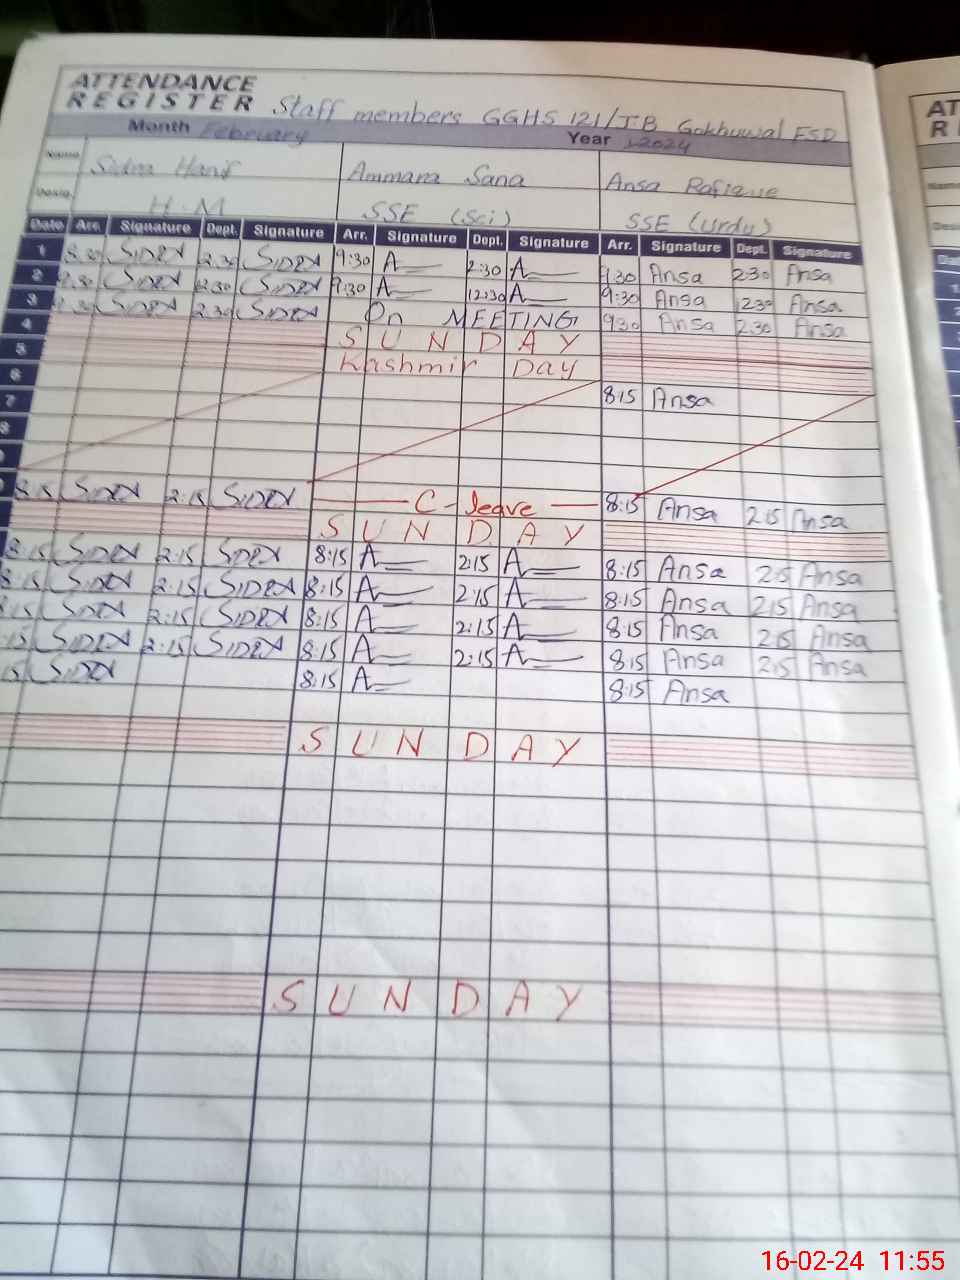 ATTENDANCE
REGISTER Staff members GGHS 121/JB Gokhuwal FSD
AT
R
Month February Year 2024
Name Sidra Hanif Ammara Sana Ansa Rafique
H.M SSE (Sci) SSE (Urdu)
Date Arr. Signature Dept. Signature Arr. Signature Dept. Signature Arr. Signature Dept. Signature
1 8:30 SIDRA 2:30 SIDRA 9:30 A 2:30 A 9:30 Ansa 2:30 Ansa
2 SIDRA 12:30 SIDRA 9:30 A 12:30 A 9:30 Ansa 12:30 Ansa
3 SIDRA 2:30 SIDRA On MEETING 9:30 Ansa 2:30 Ansa
4 SUNDAY
5 Kashmir Day
6 8:15 Ansa
7
8
8:15 SIDRA 2:15 SIDRA C-leave 8:15 Ansa 2:15 Ansa
SUNDAY
8:15 SIDRA 2:15 SIDRA 8:15 A 2:15 A 8:15 Ansa 2:15 Ansa
8:15 SIDRA 2:15 SIDRA 8:15 A 2:15 A 8:15 Ansa 2:15 Ansa
8:15 SIDRA 2:15 SIDRA 8:15 A 2:15 A 8:15 Ansa 2:15 Ansa
:15 SIDRA 2:15 SIDRA 8:15 A 2:15 A 8:15 Ansa 2:15 Ansa
15 SIDRA 8:15 A 8:15 Ansa
SUNDAY
SUNDAY
16-02-24 11:55